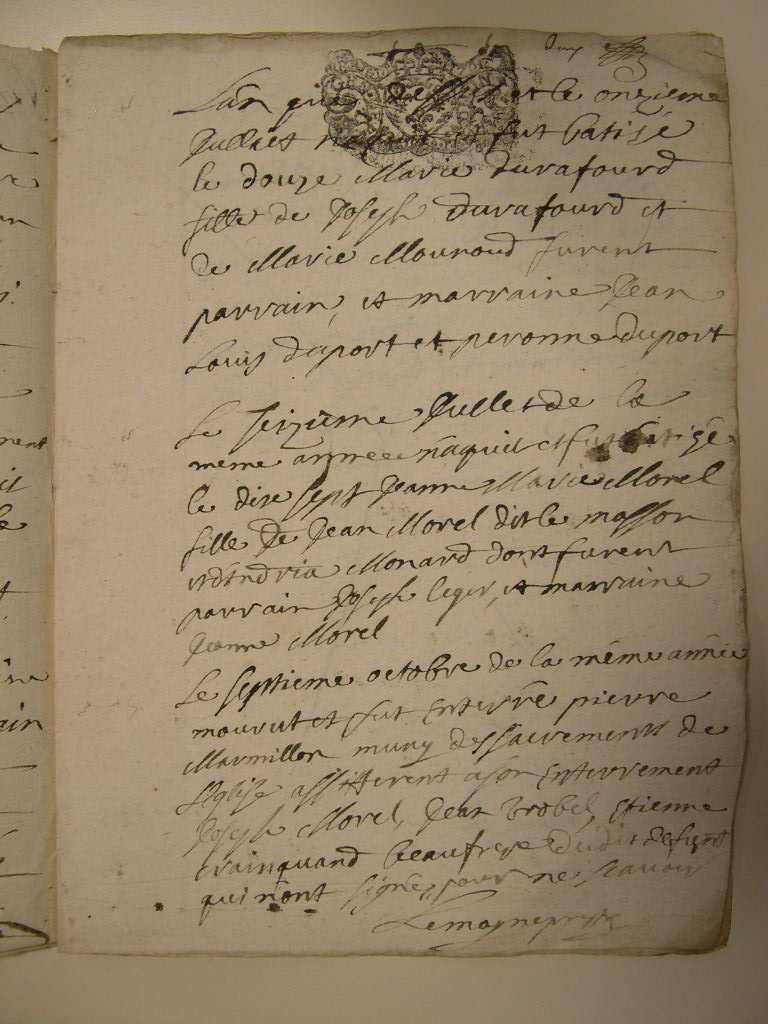 Lan que dessus et le onzieme
Jullaet naquit et fut batisé
le douze Marie durafourd
fille de Joseph durafourd et
de Marie Mounoud furent
parrain, et marraine Jean
Louis duport et peronne duport
Le seizieme Jullet de la
méme année naquit et fut batizée
le dixe sept Jeanne Marie Morel
fille de Jean Morel dit le masson
et dandria Monard dont furent
parrain Joseph leger, et marraine
Jeanne Morel
Le septieme octobre de la méme année
mourut et fut enterré pierre
Marmillon muny des sacrements de
L'eglise assisterent a son enterrement
Joseph Morel, Jean etienne
trainquand beaufrere dudit defunt
qui n'ont signé, pour ne scavoir